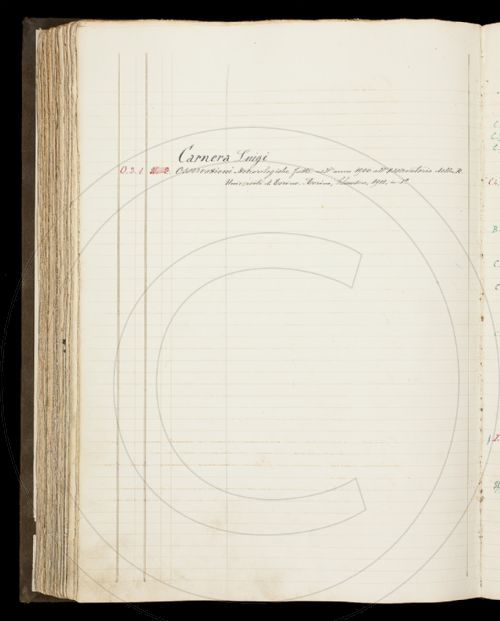 Carnera Luigi
O. 3. 1 Osservazioni Meteorologiche fatte nell' anno 1900 all' Osservatorio della R.
Università di Torino. Torino, Clausen, 1901, in 8°